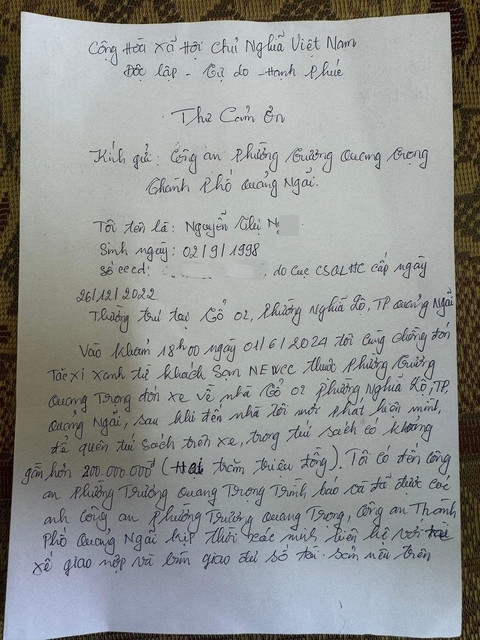 Cộng Hòa Xã Hội Chủ Nghĩa Việt Nam
Độc lập - Tự do - Hạnh Phúc
Thư Cảm Ơn
Kính gửi: Công an Phường Trương Quang Trọng
Thành Phố Quảng Ngãi.
Tôi tên là: Nguyễn Thị N
Sinh ngày: 02/9/1998
Số cccd: , do Cục CSQLHC cấp ngày
26/12/2022
Thường trú tại Tổ 02, Phường Nghĩa Lộ, TP Quảng Ngãi
Vào khoảng 18h00 ngày 01/6/2024 tôi cùng chồng đón
Tắc xi xanh từ khách sạn NEWCC thuộc Phường Trương
Quang Trọng đón xe về nhà Tổ 02 Phường Nghĩa Lộ, TP,
Quảng Ngãi, sau khi đến nhà tôi mới phát hiện mình,
để quên túi sách trên xe, trong túi sách có khoảng
gần hơn 200.000.000đ (Hai trăm triệu đồng). Tôi có đến công
an Phường Trương Quang Trọng Trình báo và đã được các
anh công an phường Trương Quang Trọng, công an Thành
Phố Quảng Ngãi kịp thời xác minh liên hệ với
xế giao nộp và bàn giao đủ số tài sản nêu trên